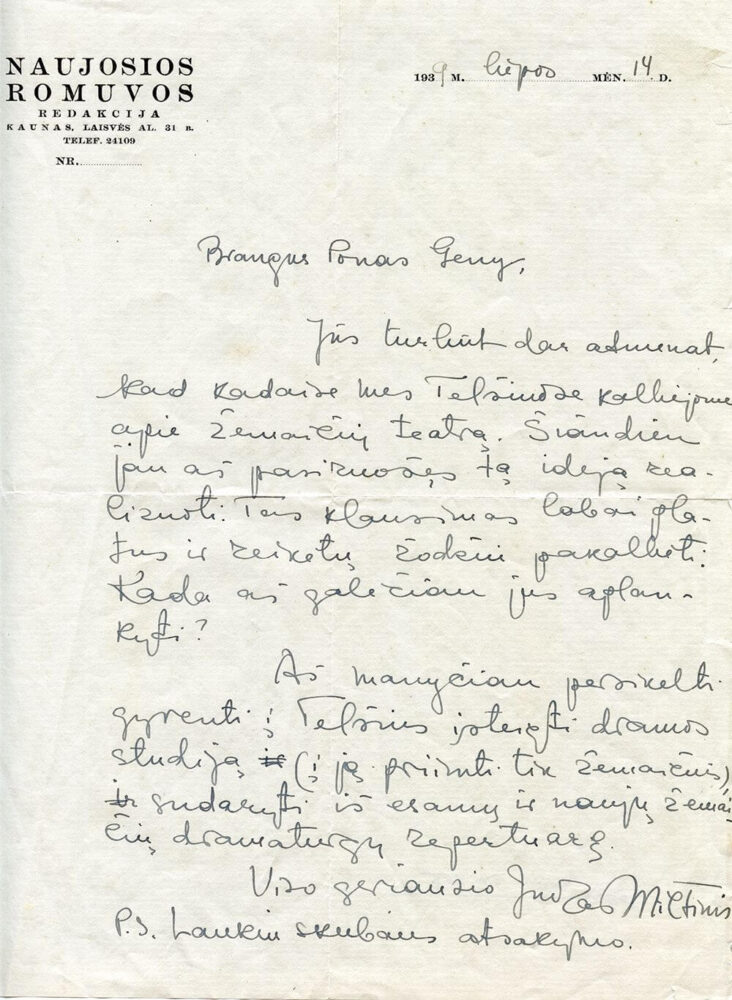 NAUJOSIOS
ROMUVOS
REDAKCIJA
KAUNAS, LAISVĖS AL. 31 B.
TELEF. 24109
NR.
1939 M. liepos MĖN. 14 D.
Brangus Ponas Geny,
Jūs turbūt dar atmenat,
kad kadaise mes Telšiuose kalbėjome
apie žemaičių teatrą. Šiandien
jau aš pasiruošęs tą idėją rea-
lizuoti. Tas klausimas labai pla-
tus ir reikėtų žodžiu pakalbėti.
Kada aš galėčiau jus aplan-
kyti?
Aš manyčiau persikelti
gyventi į Telšius įsteigti dramos
studiją ir (į ją priimti tik žemaičius)
ir sudaryti iš esamų ir naujų žemai
čių dramaturgų repertuarą.
Viso geriausio Juozas Miltinis
P.S. Laukiu skubaus atsakymo.